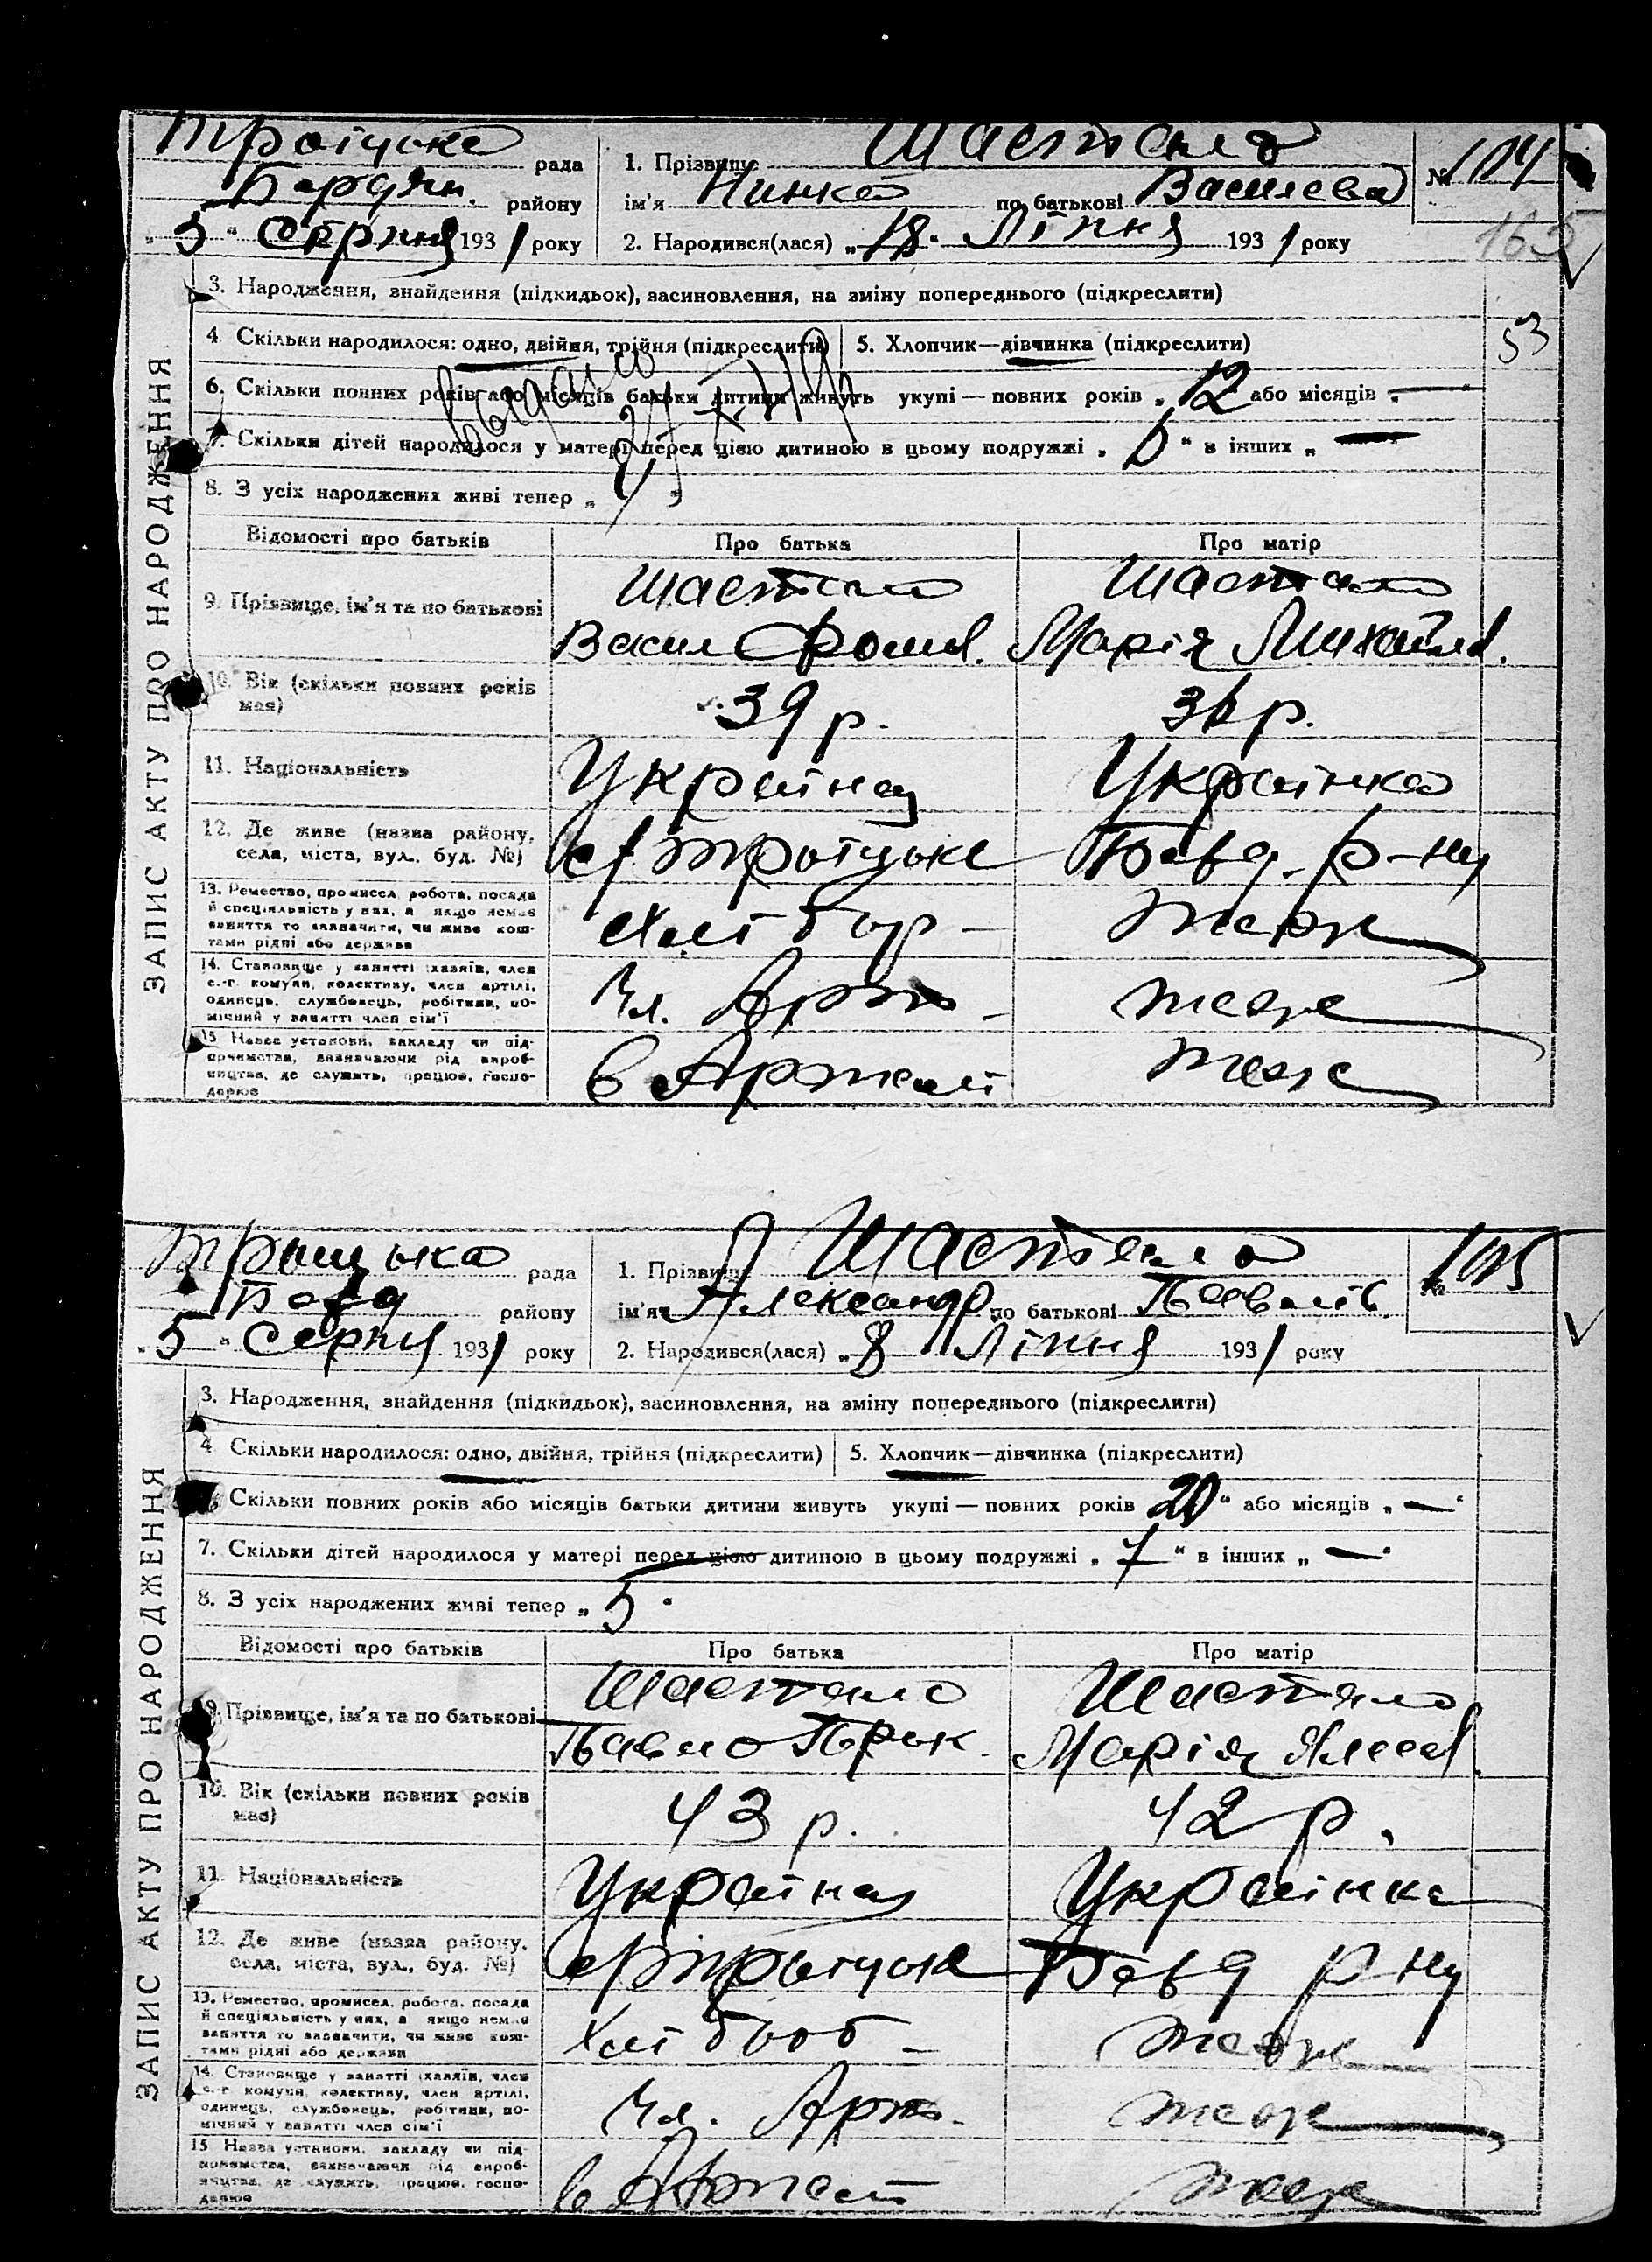 Троіцька рада
Бердян. району
„5“ Серпня 1931 року
1. Прізвище Шастало
ім'я Нинка по батькові Василева
2. Народився(лася) „18“ Ліпня 1931 року
№ 104
165
53
ЗАПИС АКТУ ПРО НАРОДЖЕННЯ
3. Народження, знайдення (підкидьок), засиновлення, на зміну попереднього (підкреслити)
4 Скільки народилося: одно, двійня, трійня (підкреслити) 5. Хлопчик—дівчинка (підкреслити)
6. Скільки повних років або місяців батьки дитини живуть укупі — повних років „12 або місяців „—“
7. Скільки дітей народилося у матері перед цією дитиною в цьому подружжі „6“ в інших „—
8. З усіх народжених живі тепер „
Відомості про батьків Про батька Про матір
9. Прізвище, ім'я та по батькові
Шастало Шастало
Васил Фомов. Марія Михайлов.
10. Вік (скільки повних років має)
39 р. 36 р.
11. Національність Українец Українка
12. Де живе (назва району, села, міста, вул., буд. №)
Троіцьке Берд. р-ну
13. Ремество, промисел, робота, посада й спеціяльність у них, а якщо немає заняття то зазначити, чи живе коштами рідні або держави
Хліббор — теж
14. Становище у занятті (хазяїн, член с.-г. комуни, колективу, член артілі, одинець, службовець, робітник, помічний у занятті член сім'ї
Чл. Арт — теж
15 Назва установи, закладу чи підприємства, зазначаючи рід виробництва, де служить, працює, господарює
в Артелі теж
Троицька рада
Берд району
„5“ Серпня 1931 року
1. Прізвище Шастало
ім'я Александр по батькові Павлов
2. Народився(лася) „8 Ліпня 1931 року
№ 105
ЗАПИС АКТУ ПРО НАРОДЖЕННЯ
3. Народження, знайдення (підкидьок), засиновлення, на зміну попереднього (підкреслити)
4 Скільки народилося: одно, двійня, трійня (підкреслити) 5. Хлопчик—дівчинка (підкреслити)
Скільки повних років або місяців батьки дитини живуть укупі — повних років 20“ або місяців „—“
7. Скільки дітей народилося у матері перед цією дитиною в цьому подружжі „7“ в інших „—“
8. З усіх народжених живі тепер „5“
Відомості про батьків Про батька Про матір
9. Прізвище, ім'я та по батькові
Шастало Шастало
Павло Прок. Марія Алекс.
10. Вік (скільки повних років має)
43 р. 42 р.
11. Національність Українец Українка
12. Де живе (назва району, села, міста, вул., буд. №)
Троіцьке Берд р-ну
13. Ремество, промисел, робота, посада й спеціяльність у них, а якщо немає заняття то зазначити, чи живе коштами рідні або держави
Хлібооб — теж
14. Становище у занятті (хазяїн, член с.-г. комуни, колективу, член артілі, одинець, службовець, робітник, помічний у занятті член сім'ї
Чл. Арт. теж
15 Назва установи, закладу чи підприємства, зазначаючи рід виробництва, де служить, працює, господарює
в Артелі теж